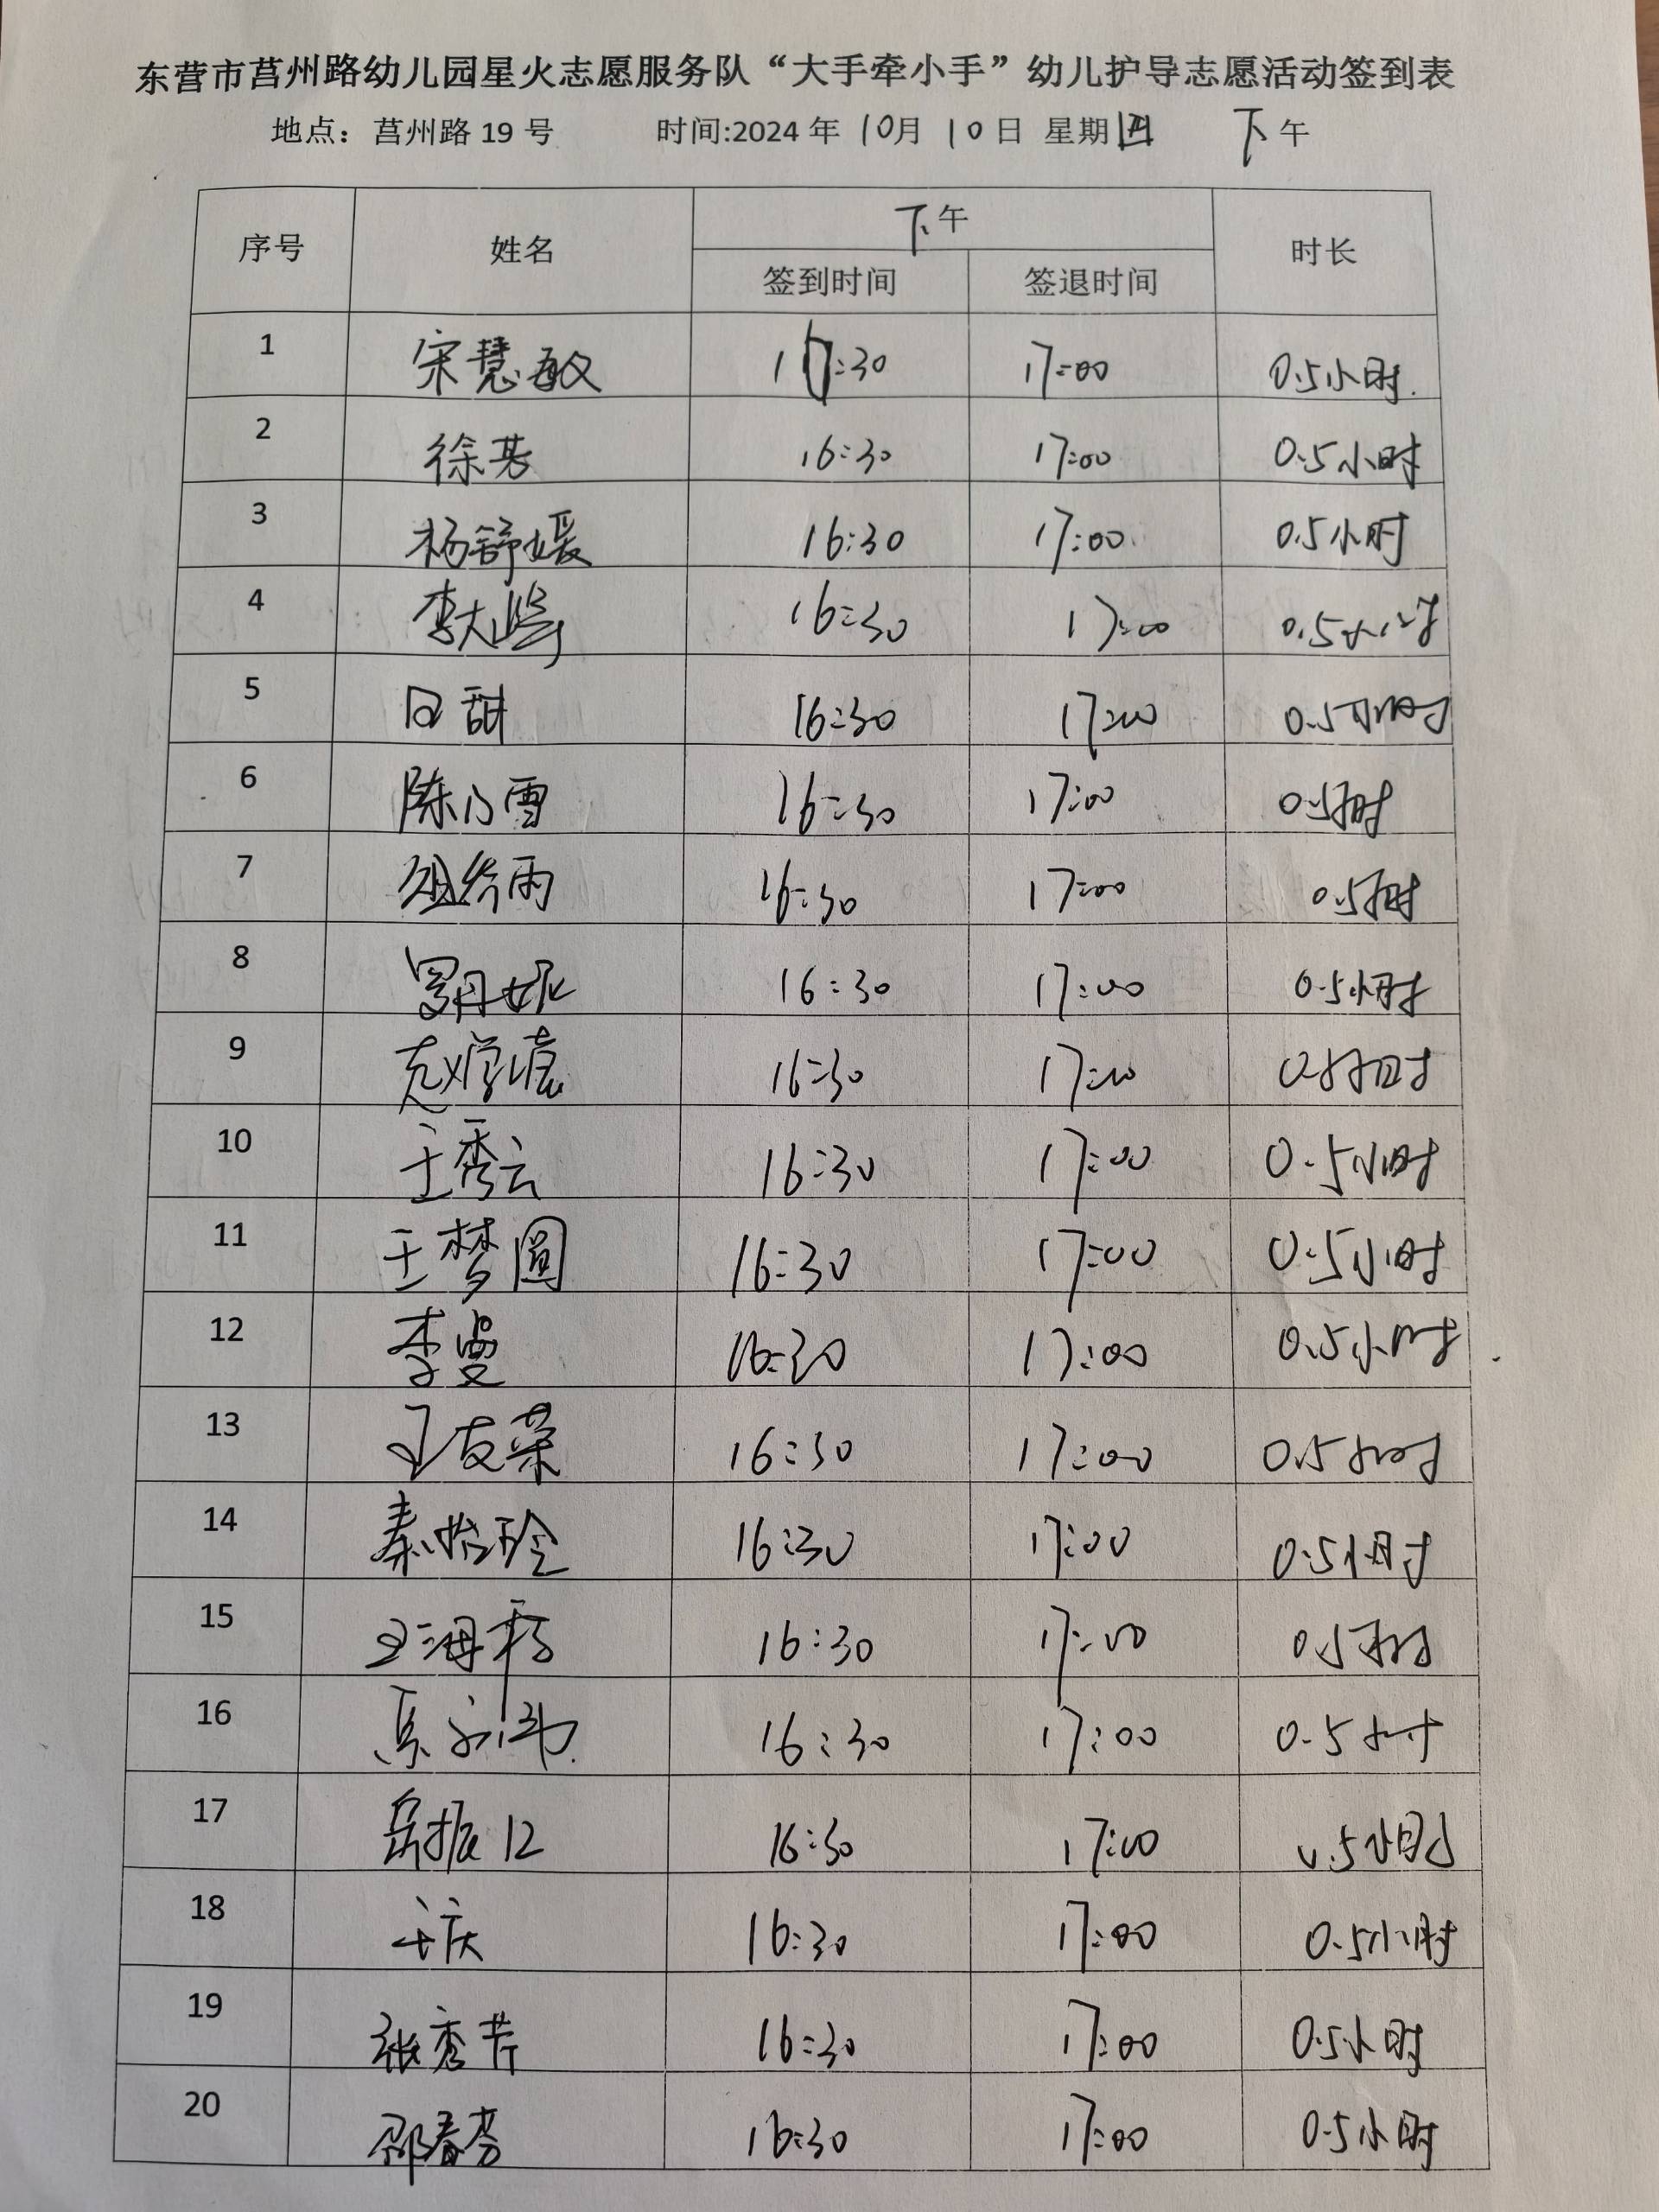 东营市莒州路幼儿园星火志愿服务队“大手牵小手”幼儿护导志愿活动签到表
地点：莒州路 19 号 时间:2024 年 10月 10日 星期四 下午
序号 姓名 下午 时长
签到时间 签退时间
1 宋慧敏 16:30 17:00 0.5小时.
2 徐芳 16:30 17:00 0.5小时
3 杨舒媛 16:30 17:00 0.5小时
4 李大鹏 16:30 17:00 0.5小时
5 田甜 16:30 17:00 0.5小时
6 陈乃雪 16:30 17:00 0.5小时
7 16:30 17:00 0.5小时
8 16:30 17:00 0.5小时
9 16:30 17:00 0.5小时
10 王秀云 16:30 17:00 0.5小时
11 王梦圆 16:30 17:00 0.5小时
12 李雯 16:30 17:00 0.5小时
13 王友荣 16:30 17:00 0.5小时
14 秦怡玲 16:30 17:00 0.5小时
15 王海 16:30 17:00 0.5小时
16 16:30 17:00 0.5小时
17 岳振江 16:30 17:00 0.5小时
18 于庆 16:30 17:00 0.5小时
19 张秀芹 16:30 17:00 0.5小时
20 邵春芬 16:30 17:00 0.5小时